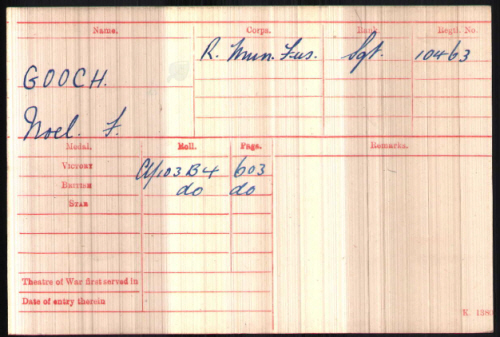 Name. Corps. Rank. Regtl. No.
GOOCH. R. Mun. Fus. Sgt. 10463
Noel. F.
Medal. Roll. Page. Remarks.
VICTORY CY/103 B4 603
BRITISH do do
STAR
Theatre of War first served in
Date of entry therein
K. 1380